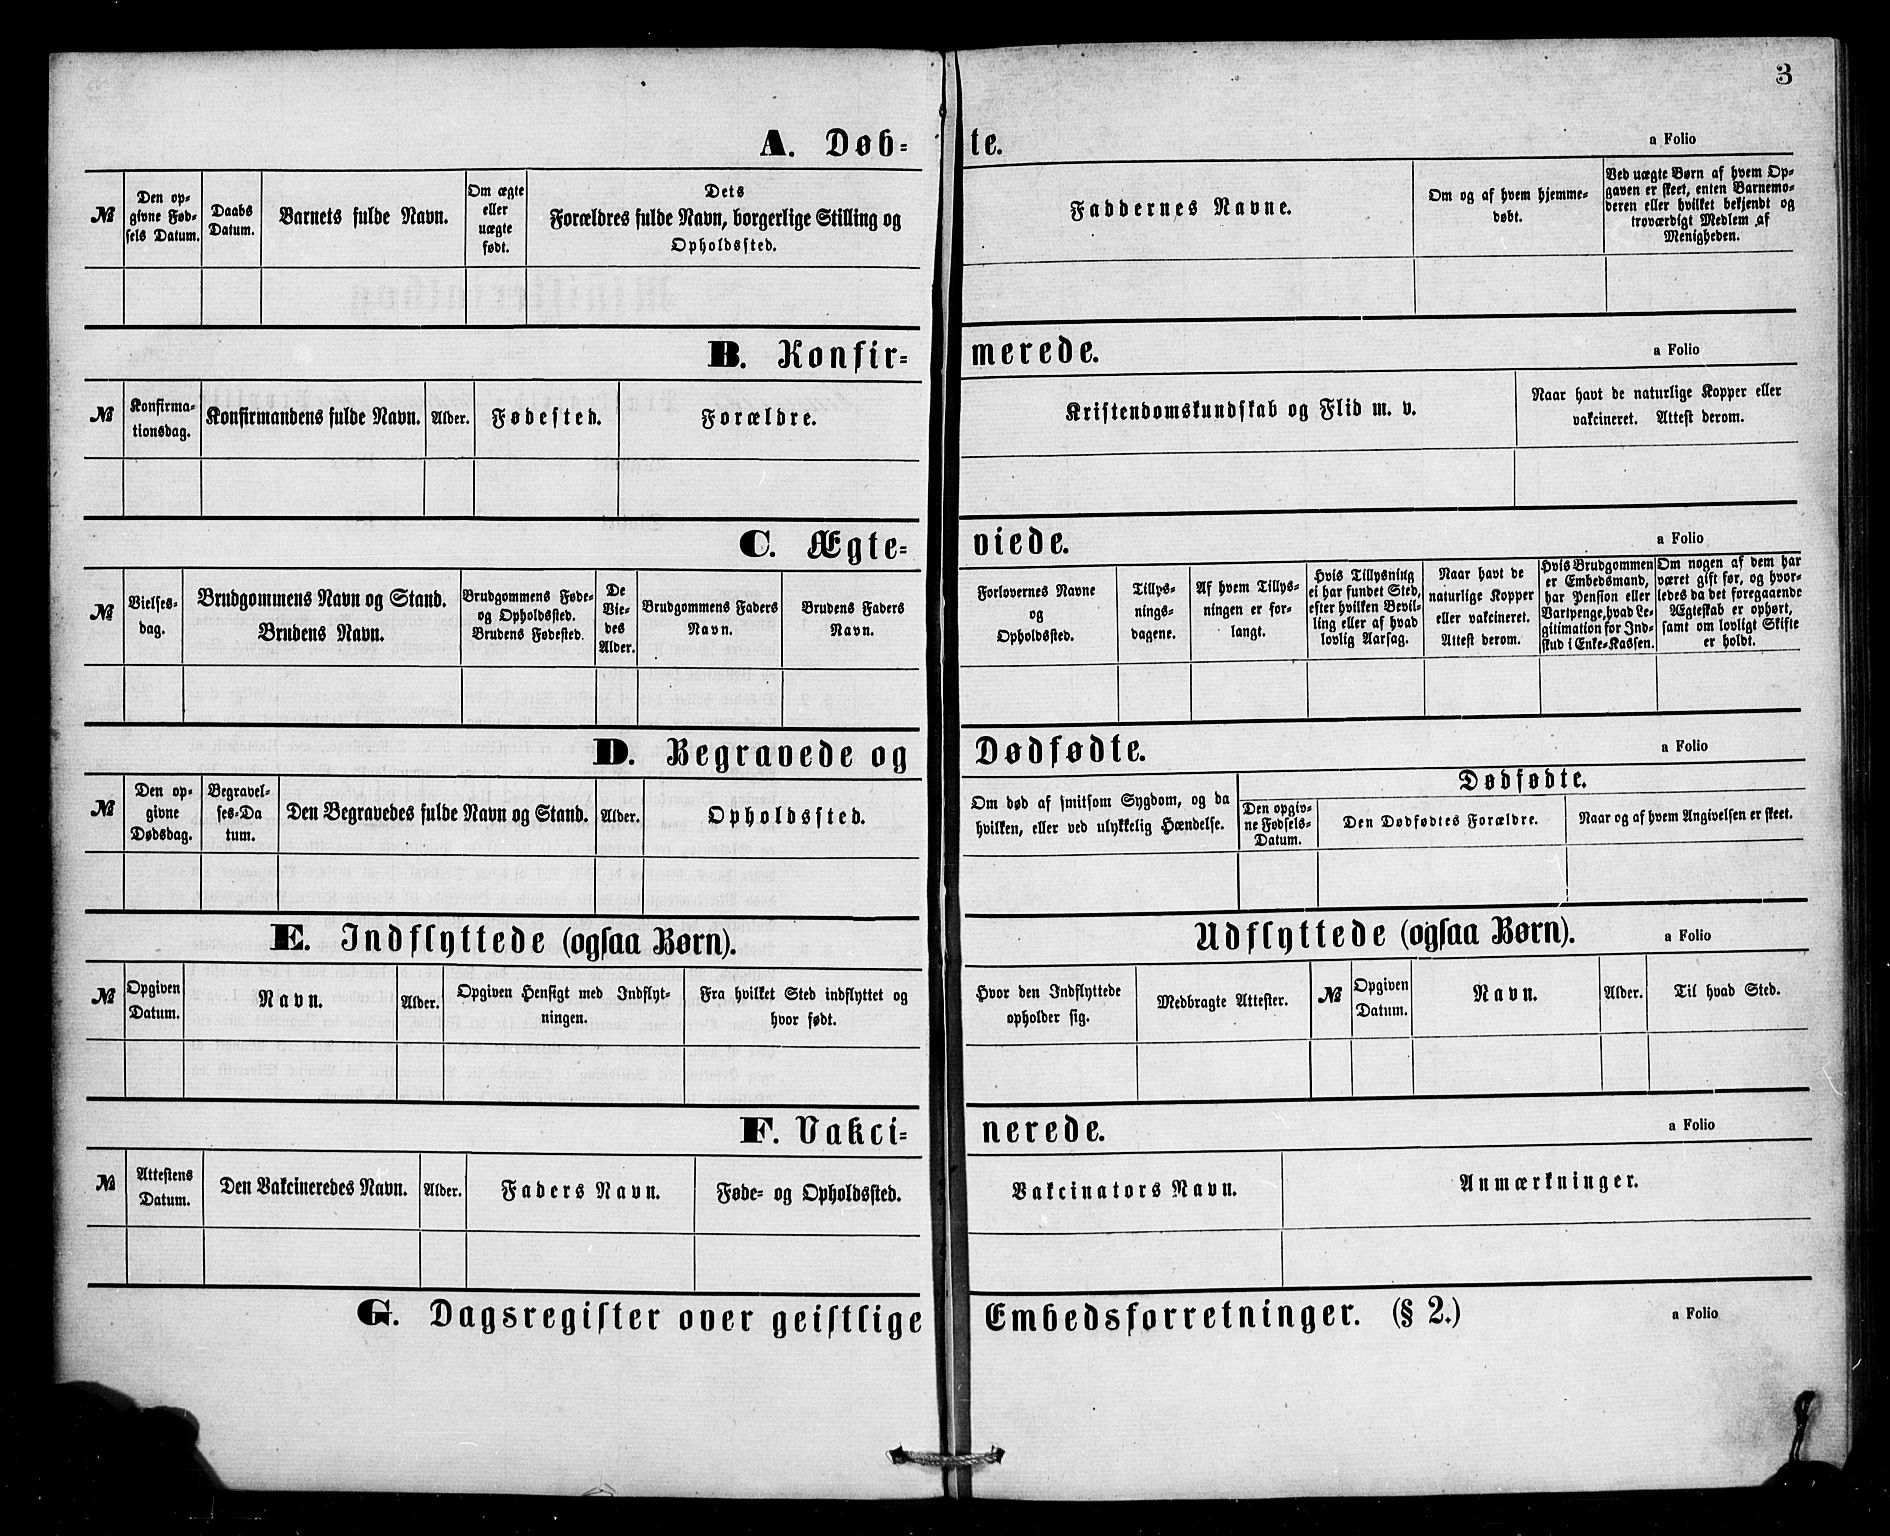 3
A. Døb-te.
a Folio
№
Den op-
givne Fød-
sels Datum.
Daabs
Datum.
Barnets fulde Navn.
Om ægte
eller
uægte
født.
Dets
Forældres fulde Navn, borgerlige Stilling og
Opholdssted.
Faddernes Navne.
Om og af hvem hjemme-
døbt.
Ved uægte Børn af hvem Op-
gaven er skeet, enten Barnemo-
deren eller hvilket bekjendt og
troværdigt Medlem af
Menigheden.
B. Konfir-merede.
a Folio
№
Konfirma-
tionsdag.
Konfirmandens fulde Navn.
Alder.
Fødested.
Forældre.
Kristendomskundskab og Flid m. v.
Naar havt de naturlige Kopper eller
vakcineret. Attest derom.
C. Ægte-viede.
a Folio
№
Vielses-
dag.
Brudgommens Navn og Stand.
Brudens Navn.
Brudgommens Føde-
og Opholdssted.
Brudens Fødested.
De
Vie-
des
Alder.
Brudgommens Faders
Navn.
Brudens Faders
Navn.
Forlovernes Navne
og
Opholdssted.
Tillys-
nings-
dagene.
Af hvem Tillys-
ningen er for-
langt.
Hvis Tillysning
ei har fundet Sted,
efter hvilken Bevil-
ling eller af hvad
lovlig Aarsag.
Naar havt de
naturlige Kopper
eller vakcineret.
Attest derom.
Hvis Brudgommen
er Embedsmand,
har Pension eller
Vartpenge, hvad Le-
gitimation for Ind-
skud i Enke-Kassen.
Om nogen af dem har
været gift før, og hvor-
ledes da det foregaaende
Ægteskab er ophørt,
samt om lovligt Skifte
er holdt.
D. Begravede og Dødfødte.
a Folio
№
Den op-
givne
Dødsdag.
Begravel-
ses-Da
tum.
Den Begravedes fulde Navn og Stand.
Alder.
Opholdssted.
Om død af smitsom Sygdom, og da
hvilken, eller ved ulykkelig Hændelse.
Dødfødte.
Den opgiv-
ne Fødsels-
Datum.
Den Dødfødtes Forældre.
Naar og af hvem Angivelsen er skeet.
E. Indflyttede (ogsaa Børn).
Udflyttede (ogsaa Børn).
a Folio
№
Opgiven
Datum.
Navn.
Alder.
Opgiven Hensigt med Indflyt-
ningen.
Fra hvilket Sted indflyttet og
hvor født.
Hvor den Indflyttede
opholder sig.
Medbragte Attester.
№
Opgiven
Datum.
Navn.
Alder.
Til hvad Sted.
F. Vakci-nerede.
a Folio
№
Attestens
Datum.
Den Vakcineredes Navn.
Alder.
Faders Navn.
Føde- og Opholdssted.
Vakcinators Navn.
Anmærkninger.
G. Dagsregister over geistlige Embedsforretninger. (§ 2.)
a Folio